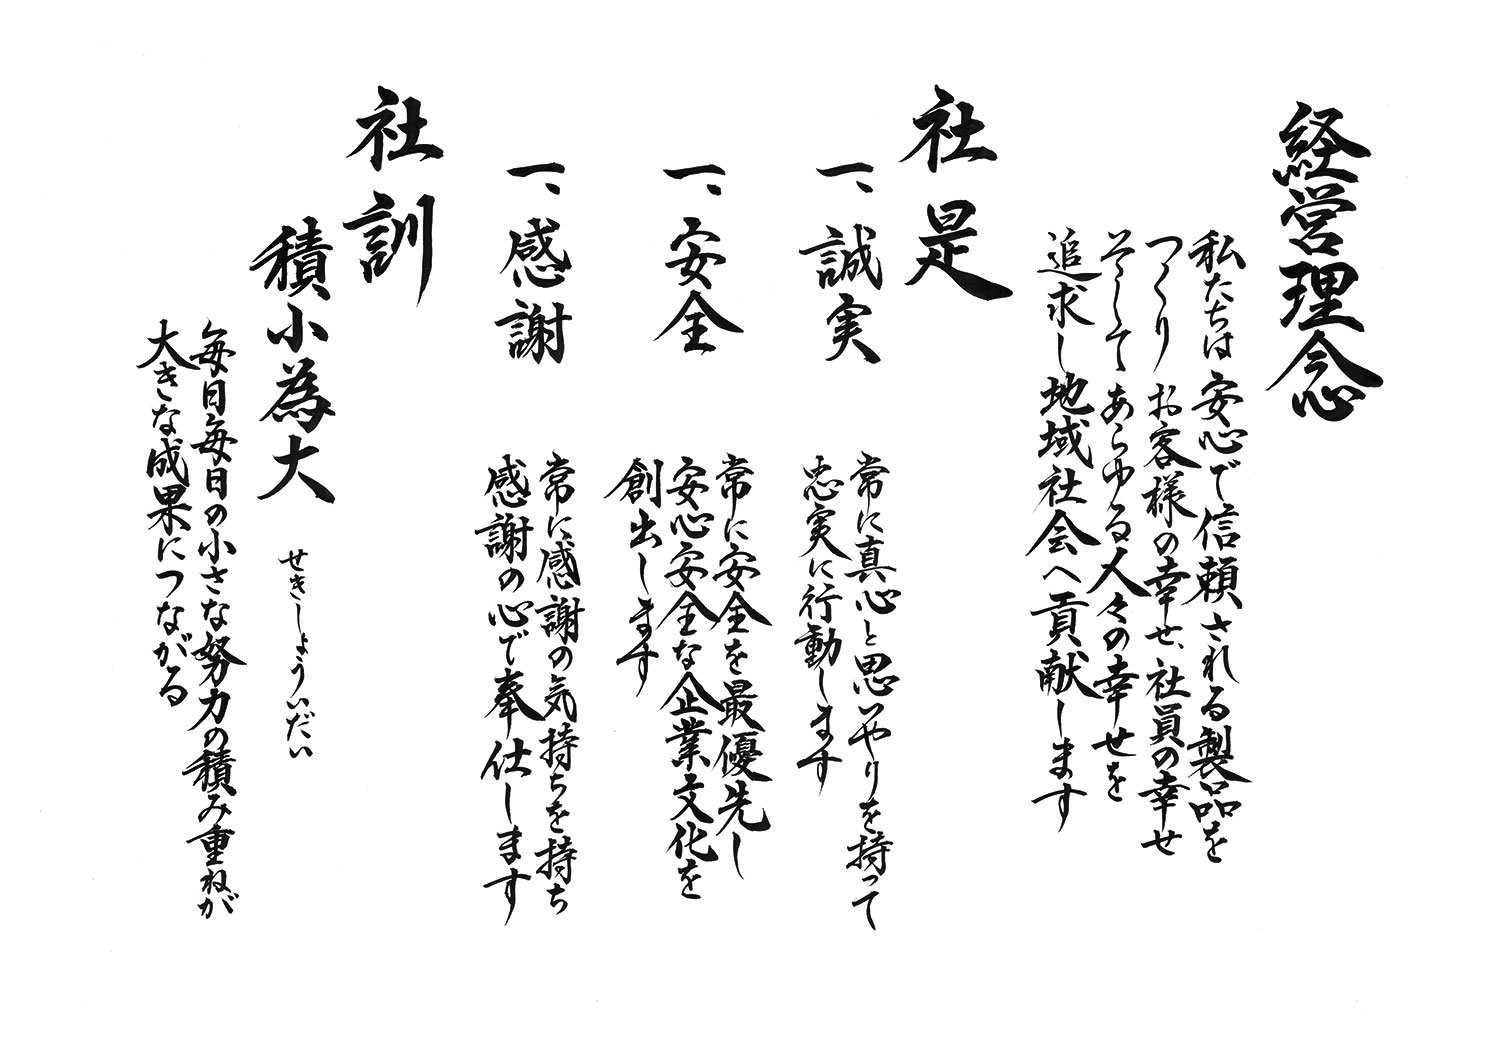 経営理念
私たちは安心で信頼される製品を
つくり お客様の幸せ、社員の幸せ
そして あらゆる人々の幸せを
追求し地域社会へ貢献します
社是
一、誠実
常に真心と思いやりを持って
忠実に行動します
一、安全
常に安全を最優先し
安心安全な企業文化を
創出します
一、感謝
常に感謝の気持ちを持ち
感謝の心で奉仕します
社訓
積小為大 せきしょういだい
毎日毎日の小さな努力の積み重ねが
大きな成果につながる